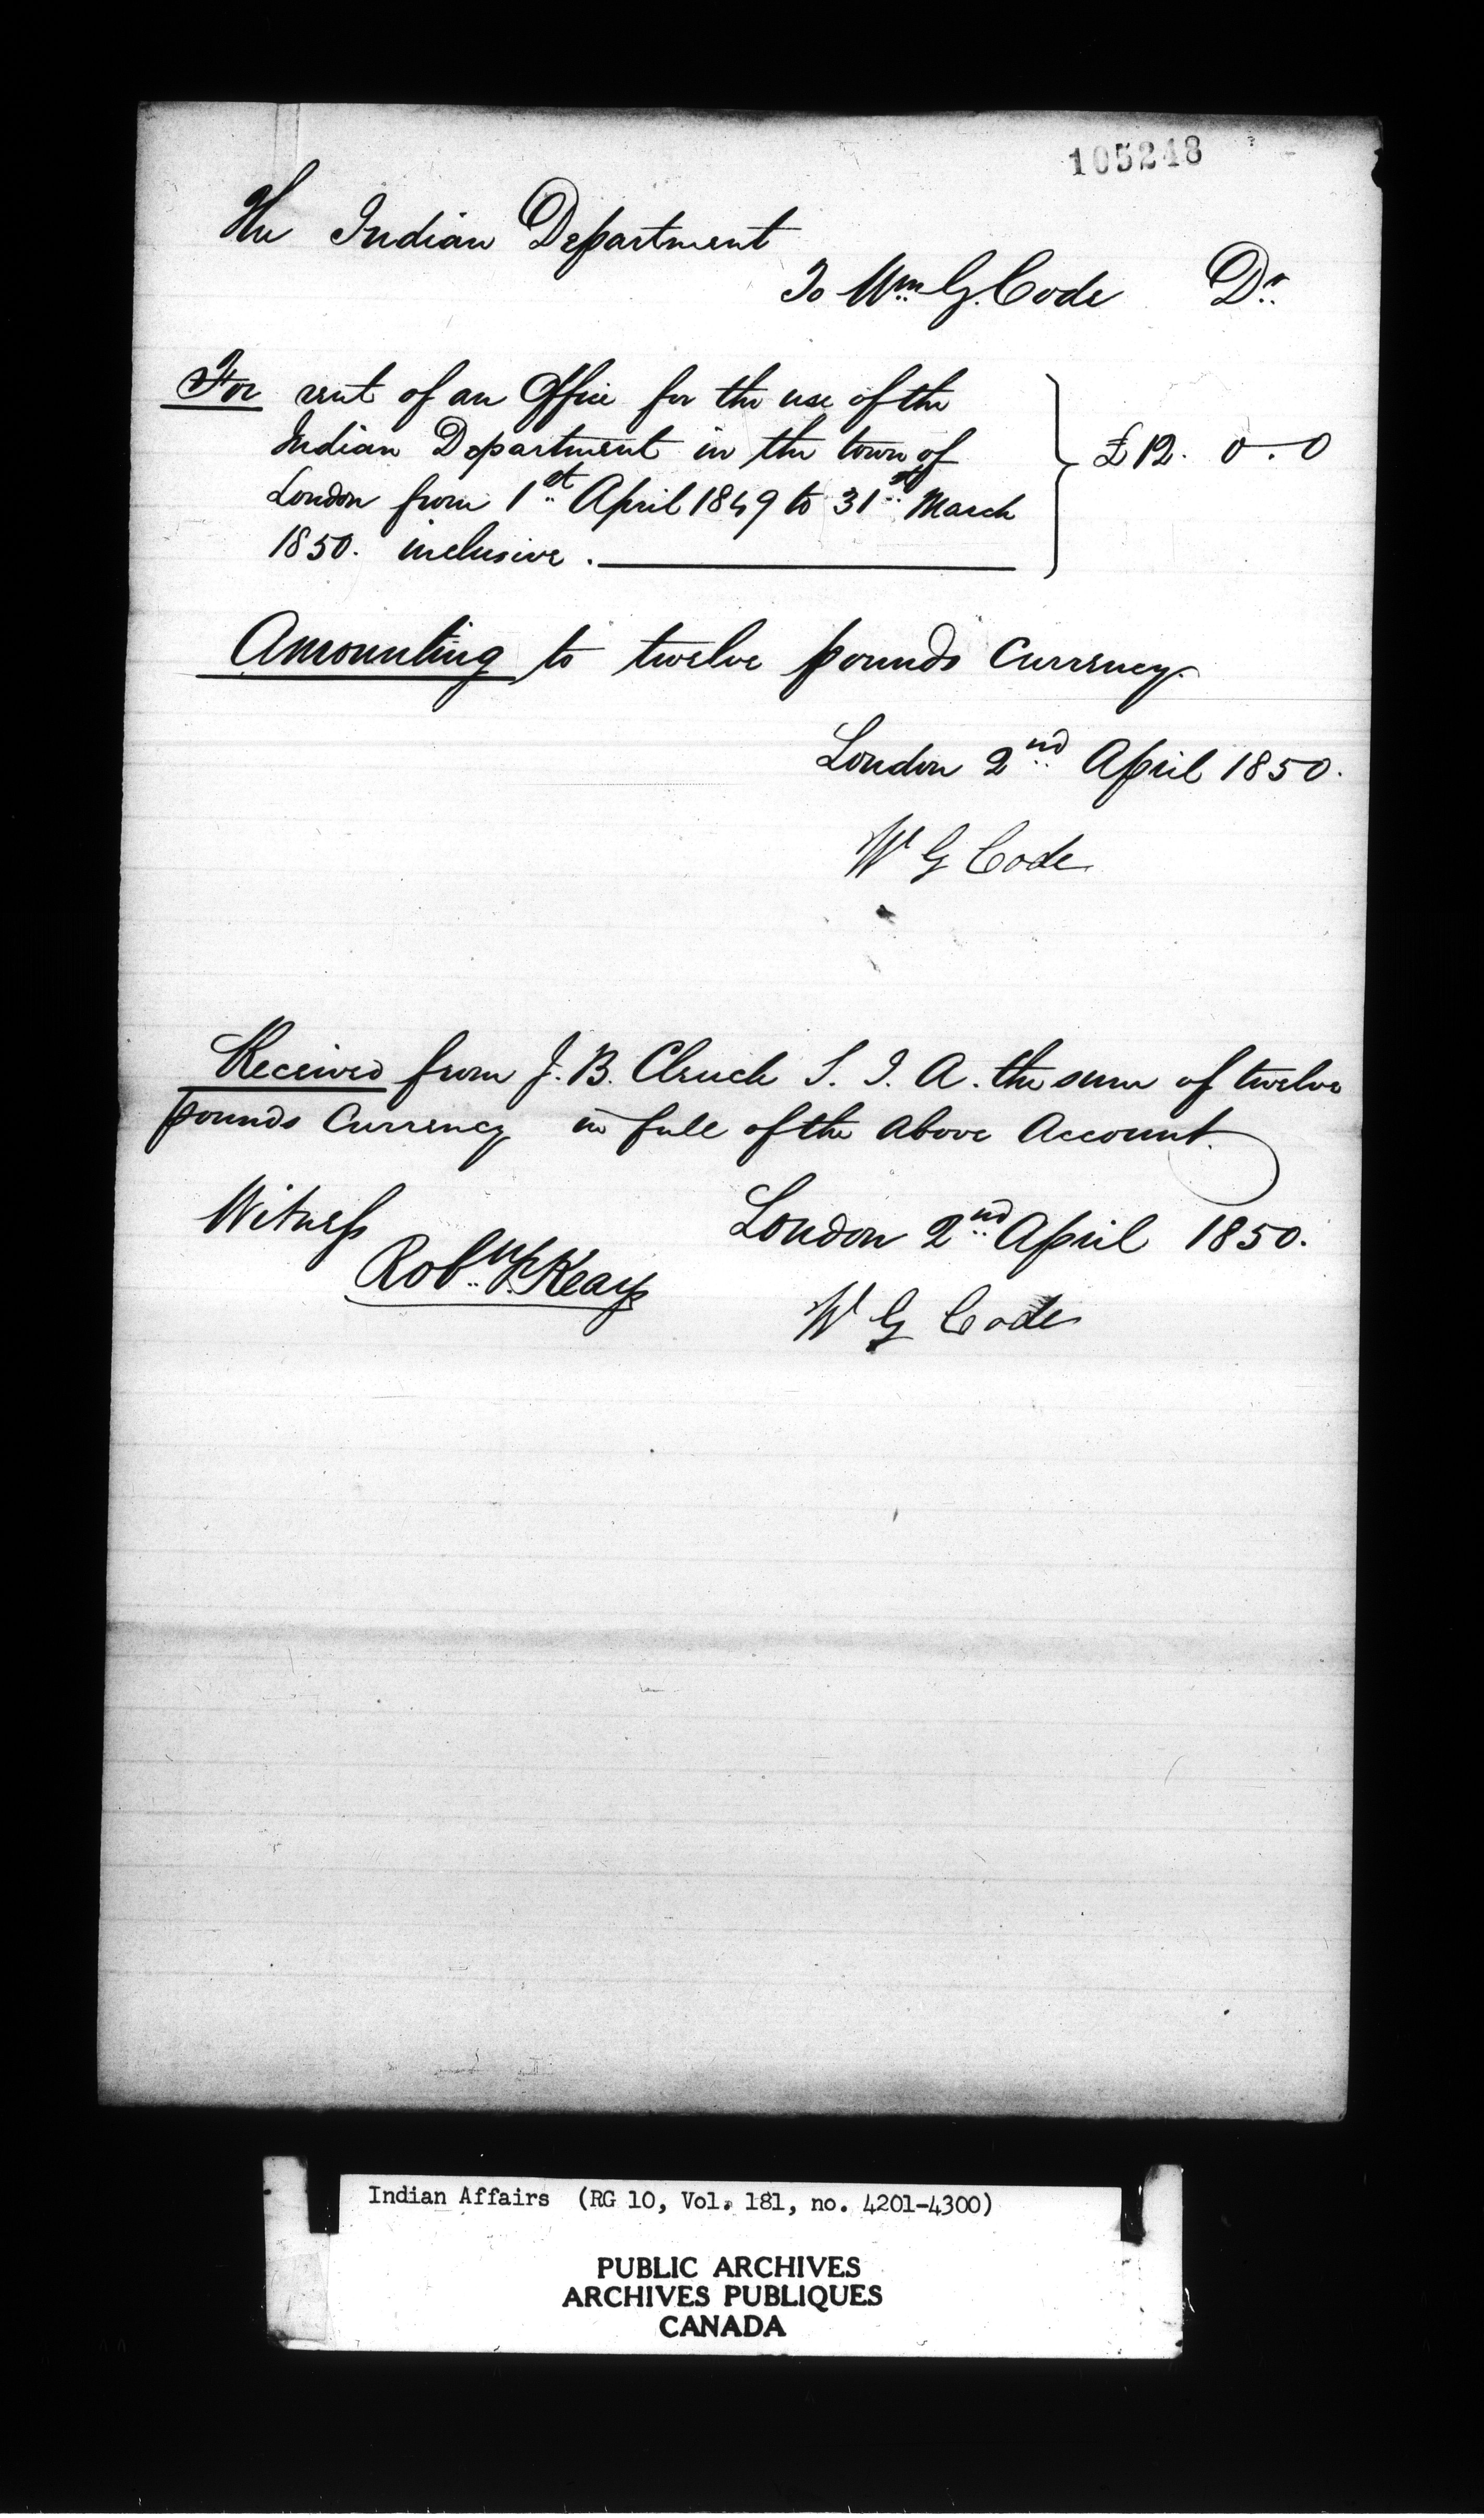 105248
The Indian Department
To Wm G. Code Dr.
For rent of an Office for the use of the
Indian Department in the town of
London from 1st April 1849 to 31st March
1850. inclusive.
£12. 0. 0
Amounting to twelve pounds Currency.
London 2nd April 1850.
W G Code
Received from J. B. Clench S. I. A. the sum of twelve
pounds Currency in full of the above Account.
Witness
London 2nd April 1850.
Robt Keays
W G Code
Indian Affairs (RG 10, Vol. 181, no. 4201-4300)
PUBLIC ARCHIVES
ARCHIVES PUBLIQUES
CANADA